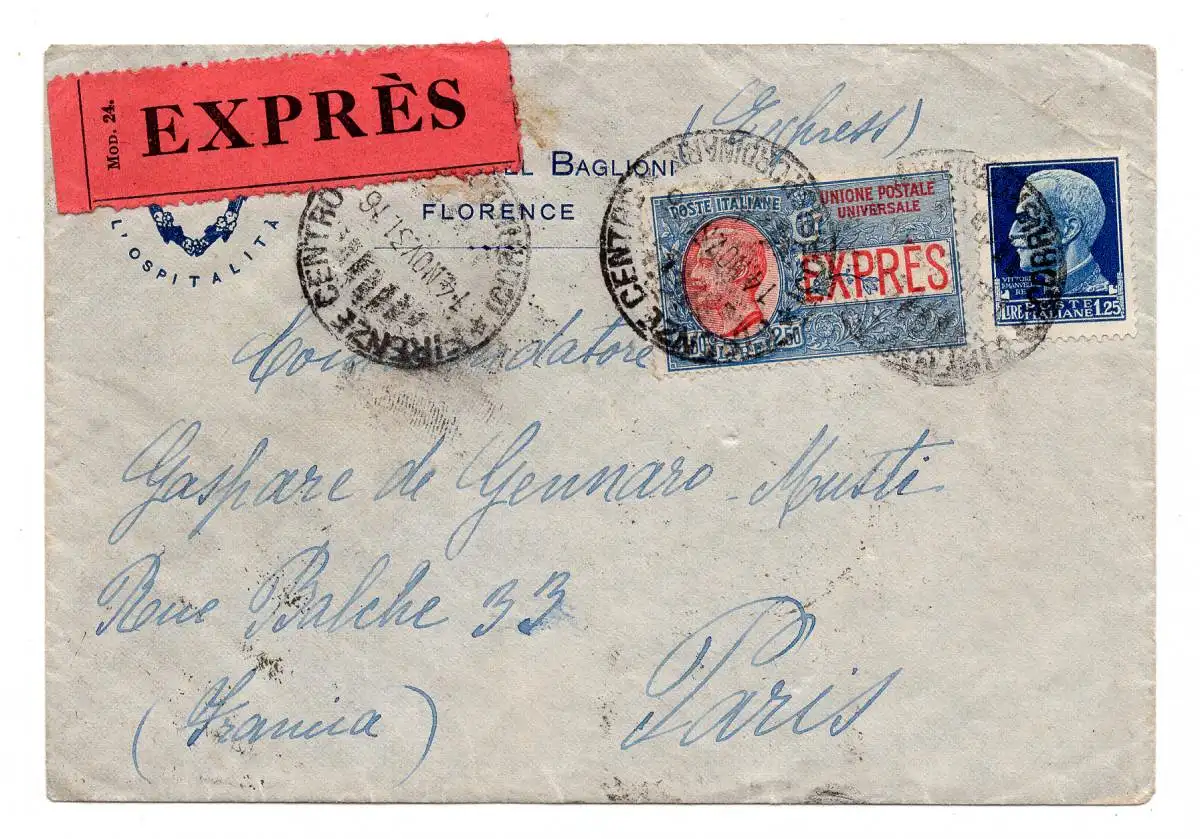 MOD. 24.
EXPRÈS
(Express)
BAGLIONI
FLORENCE
L'OSPITALITÀ
FIRENZE CENTRO
POSTE ITALIANE
UNIONE POSTALE
UNIVERSALE
EXPRÈS
2.50
POSTE
LIRE ITALIANE 1.25
Gaspare de Gennaro - Musti
Rue Balche 33
Paris
(Francia)